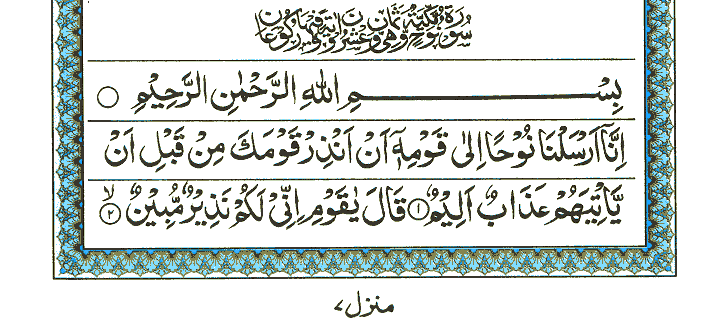 سُوْرَةُ نُوْحٍ مَكِّيَّةٌ وَّهِيَ ثَمَانٍ وَّعِشْرُوْنَ اٰيَةً وَّفِيْهَا رُكُوْعَانِ
بِسْمِ اللّٰهِ الرَّحْمٰنِ الرَّحِيْمِ ○
اِنَّاۤ اَرْسَلْنَا نُوْحًا اِلٰى قَوْمِهٖۤ اَنْ اَنْذِرْ قَوْمَكَ مِنْ قَبْلِ اَنْ
يَّاْتِيَهُمْ عَذَابٌ اَلِيْمٌ ۝۱ قَالَ يٰقَوْمِ اِنِّىْ لَكُمْ نَذِيْرٌ مُّبِيْنٌ ۝۲ۙ
منزل ۷